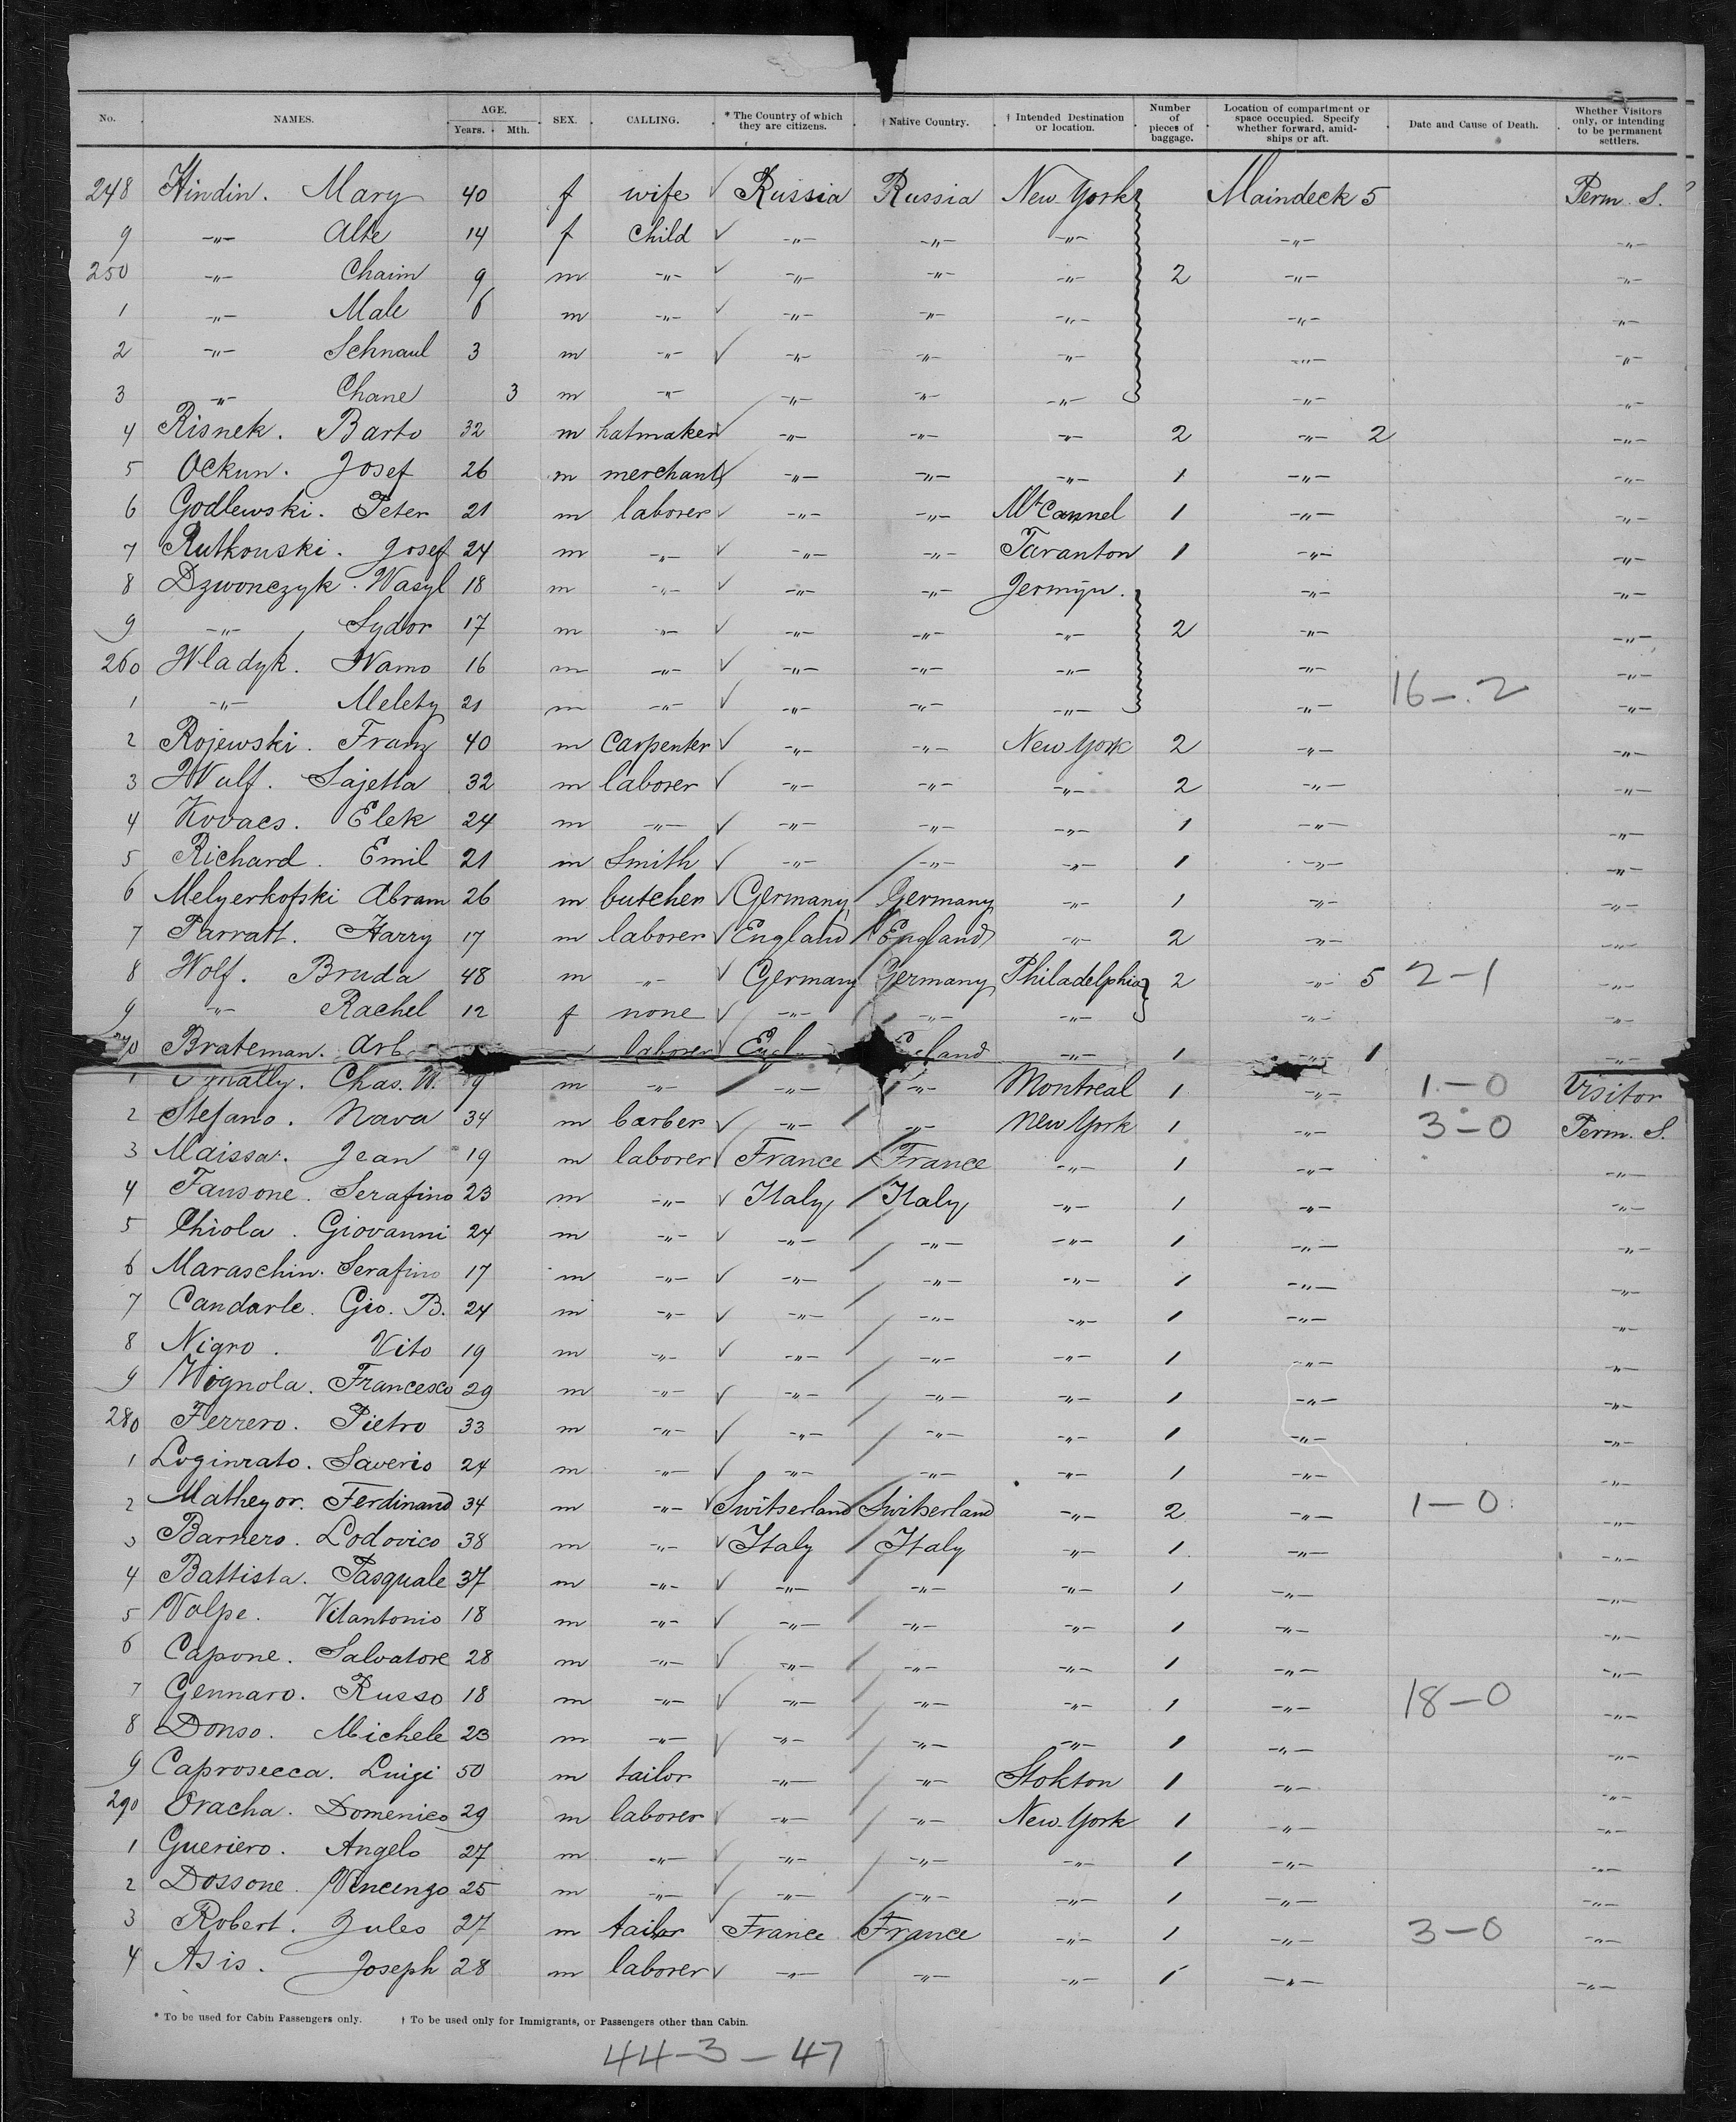 No. NAMES. AGE. Years. Mth. SEX. CALLING. * The Country of which they are citizens. † Native Country. † Intended Destination or location. Number of pieces of baggage. Location of compartment or space occupied. Specify whether forward, amidships or aft. Date and Cause of Death. Whether Visitors only, or intending to be permanent settlers.
248 Hindin. Mary 40 f wife ✓ Russia Russia New York Maindeck 5 Perm. S.
9 -"- Alte 14 f child ✓ -"- -"- -"- -"- -"-
250 -"- Chaim 9 m -"- ✓ -"- -"- -"- 2 -"- -"-
1 -"- Male 6 m -"- ✓ -"- -"- -"- -"- -"-
2 -"- Schnaul 3 m -"- ✓ -"- -"- -"- -"- -"-
3 -"- Chane 3 m -"- -"- -"- -"- -"- -"-
4 Risnek. Barto 32 m hatmaker ✓ -"- -"- -"- 2 -"- 2 -"-
5 Ockun. Josef 26 m merchant ✓ -"- -"- -"- 1 -"- -"-
6 Godlewski. Peter 21 m laborer ✓ -"- -"- Mt Carmel 1 -"- -"-
7 Rutkouski. Josef 24 m -"- ✓ -"- -"- Taranton 1 -"- -"-
8 Dzwonczyk. Wasyl 18 m -"- ✓ -"- -"- Jermyn. -"- -"-
9 -"- Sydor 17 m -"- ✓ -"- -"- -"- 2 -"- -"-
260 Wladyk. Wamo 16 m -"- ✓ -"- -"- -"- -"- -"-
1 -"- Melety 21 m -"- ✓ -"- -"- -"- -"- 16-2 -"-
2 Rojewski. Franz 40 m carpenter ✓ -"- -"- New York 2 -"- -"-
3 Wulf. Sajetta 32 m laborer ✓ -"- -"- -"- 2 -"- -"-
4 Kovacs. Elek 24 m -"- ✓ -"- -"- -"- 1 -"- -"-
5 Richard. Emil 21 m Smith ✓ -"- -"- -"- 1 -"- -"-
6 Melyerkofski Abram 26 m butcher ✓ Germany Germany -"- 1 -"- -"-
7 Parratt. Harry 17 m laborer ✓ England England -"- 2 -"- -"-
8 Wolf. Bruda 48 m -"- ✓ Germany Germany Philadelphia 2 -"- 5 2-1 -"-
9 -"- Rachel 12 f none ✓ -"- -"- -"- -"- -"-
270 Brateman. Arb laborer ✓ England -"- 1 -"- 1 -"-
1 Chas. W. 19 m -"- -"- -"- Montreal 1 -"- 1-0 Visitor
2 Stefano. Nava 34 m barber ✓ -"- -"- New York 1 -"- 3-0 Perm. S.
3 Maissa. Jean 19 m laborer ✓ France France -"- 1 -"- -"-
4 Fausone. Serafino 23 m -"- ✓ Italy Italy -"- 1 -"- -"-
5 Chiola. Giovanni 24 m -"- ✓ -"- -"- -"- 1 -"- -"-
6 Maraschin. Serafino 17 m -"- ✓ -"- -"- -"- 1 -"- -"-
7 Candarle. Gio. B. 24 m -"- ✓ -"- -"- -"- 1 -"- -"-
8 Nigro. Vito 19 m -"- ✓ -"- -"- -"- 1 -"- -"-
9 Mignola. Francesco 29 m -"- ✓ -"- -"- -"- 1 -"- -"-
280 Ferrero. Pietro 33 m -"- ✓ -"- -"- -"- 1 -"- -"-
1 Loginrato. Saverio 24 m -"- ✓ -"- -"- -"- 1 -"- -"-
2 Matheyor. Ferdinand 34 m -"- ✓ Switserland Switserland -"- 2 -"- 1-0 -"-
3 Barnero. Lodovico 38 m -"- ✓ Italy Italy -"- 1 -"- -"-
4 Battista. Pasquale 37 m -"- ✓ -"- -"- -"- 1 -"- -"-
5 Volpe. Vitantonio 18 m -"- ✓ -"- -"- -"- 1 -"- -"-
6 Capone. Salvatore 28 m -"- ✓ -"- -"- -"- 1 -"- -"-
7 Gennaro. Russo 18 m -"- ✓ -"- -"- -"- 1 -"- 18-0 -"-
8 Donso. Michele 23 m -"- ✓ -"- -"- -"- 1 -"- -"-
9 Caprosecca. Luigi 50 m tailor -"- -"- Stokton 1 -"- -"-
290 Oracha. Domenico 29 m laborer ✓ -"- -"- New York 1 -"- -"-
1 Gueriero. Angelo 27 m -"- ✓ -"- -"- -"- 1 -"- -"-
2 Dossone. Vincenzo 25 m -"- ✓ -"- -"- -"- 1 -"- -"-
3 Robert. Jules 27 m tailor ✓ France France -"- 1 -"- 3-0 -"-
4 Asis. Joseph 28 m laborer ✓ -"- -"- -"- 1 -"- -"-
* To be used for Cabin Passengers only. † To be used only for Immigrants, or Passengers other than Cabin.
44-3-47